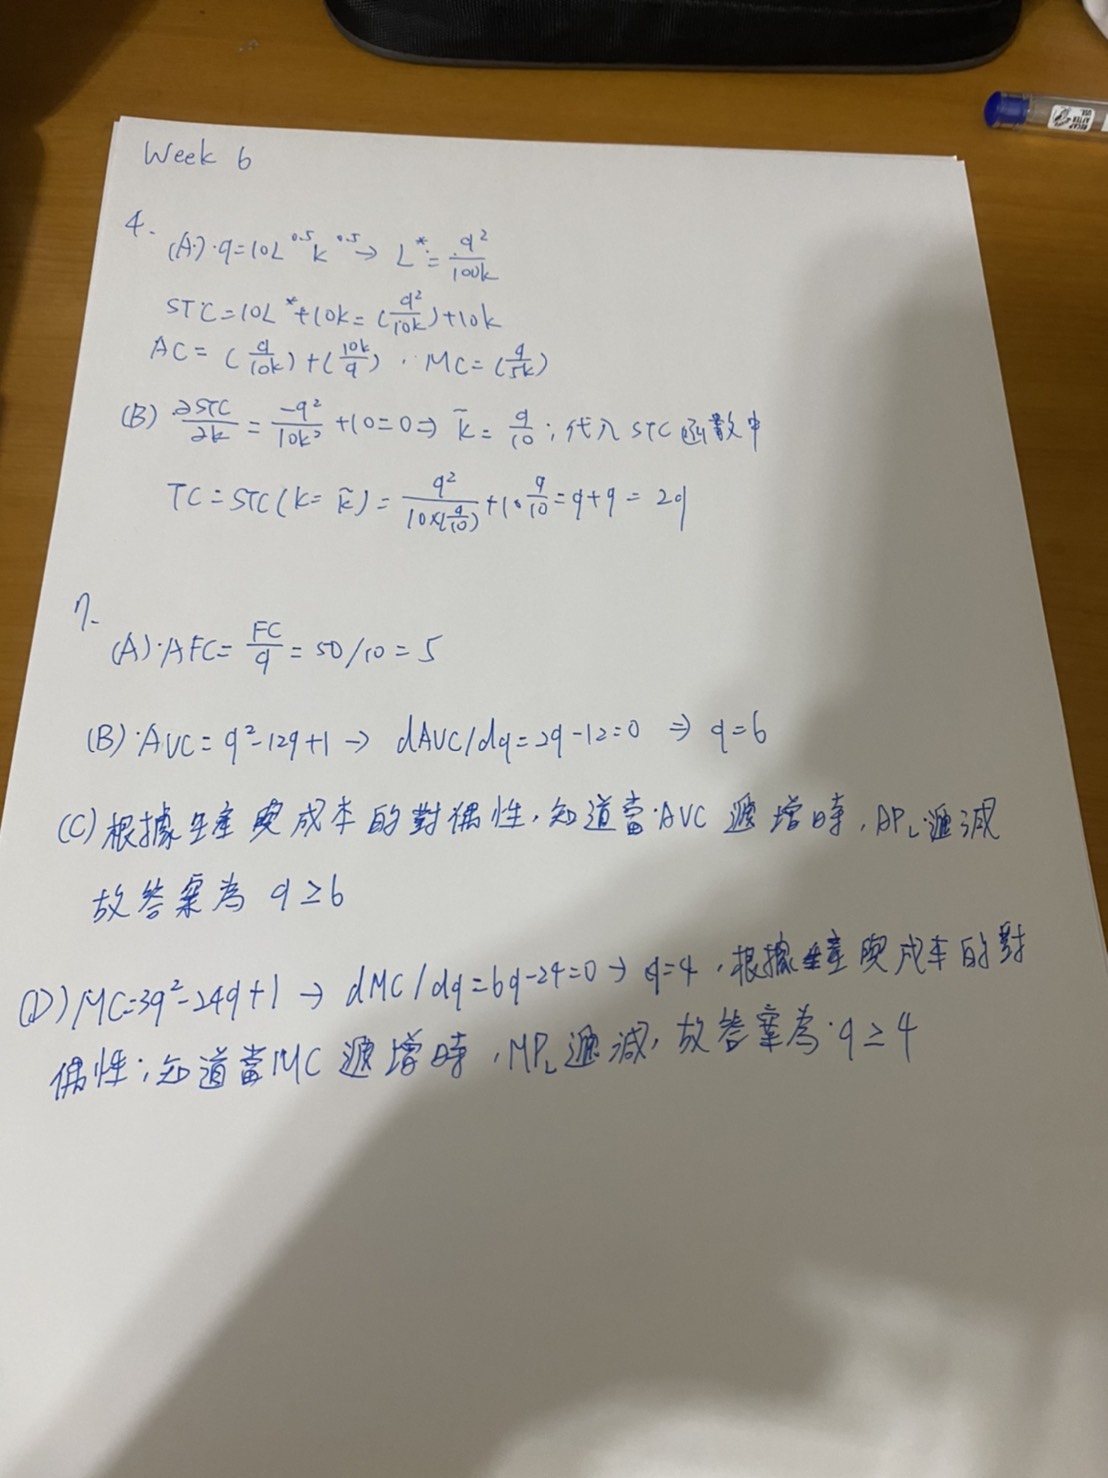 Week 6
4.
(A).q=10L^0.5 K^0.5 → L* = q²/100k
STC=10L*+10k=(q²/10k)+10k
AC=(q/10k)+(10k/q)．MC=(q/5k)
(B) ∂STC/∂k = -q²/10k² +10=0 ⇒ k̄ = q/10；代入STC函數中
TC=STC(k=k̄)= q²/(10×(q/10)) +10·q/10=q+q=2q
7.
(A)．AFC=FC/q=50/10=5
(B)．AVC=q²-12q+1 → dAVC/dq=2q-12=0 ⇒ q=6
(C)根據生產與成本的對偶性，知道當．AVC 遞增時，AP_L遞減
故答案為 q≥6
(D)MC=3q²-24q+1 → dMC/dq=6q-24=0 → q=4，根據生產與成本的對
偶性；知道當MC 遞增時，MP_L遞減，故答案為．q≥4